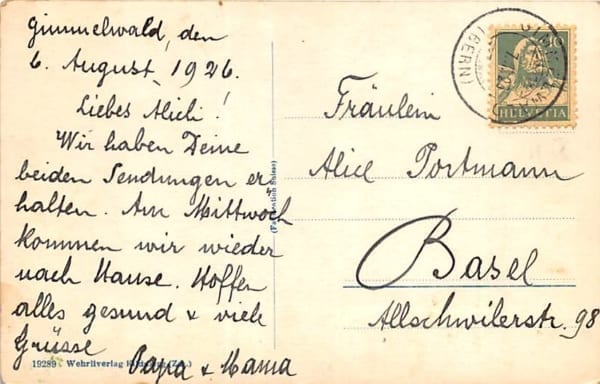 Gimmelwald, den
6. August, 1926.
Liebes Alicli!
Wir haben Deine
beiden Sendungen er-
halten. Am Mittwoch
kommen wir wieder
nach Hause. Hoffen
alles gesund & viele
Grüsse
Papa & Mama
19289 Wehrliverlag
(Fabrication Suisse)
(BERN)
HELVETIA
Fräulein
Alice Portmann
Basel
Allschwilerstr. 98